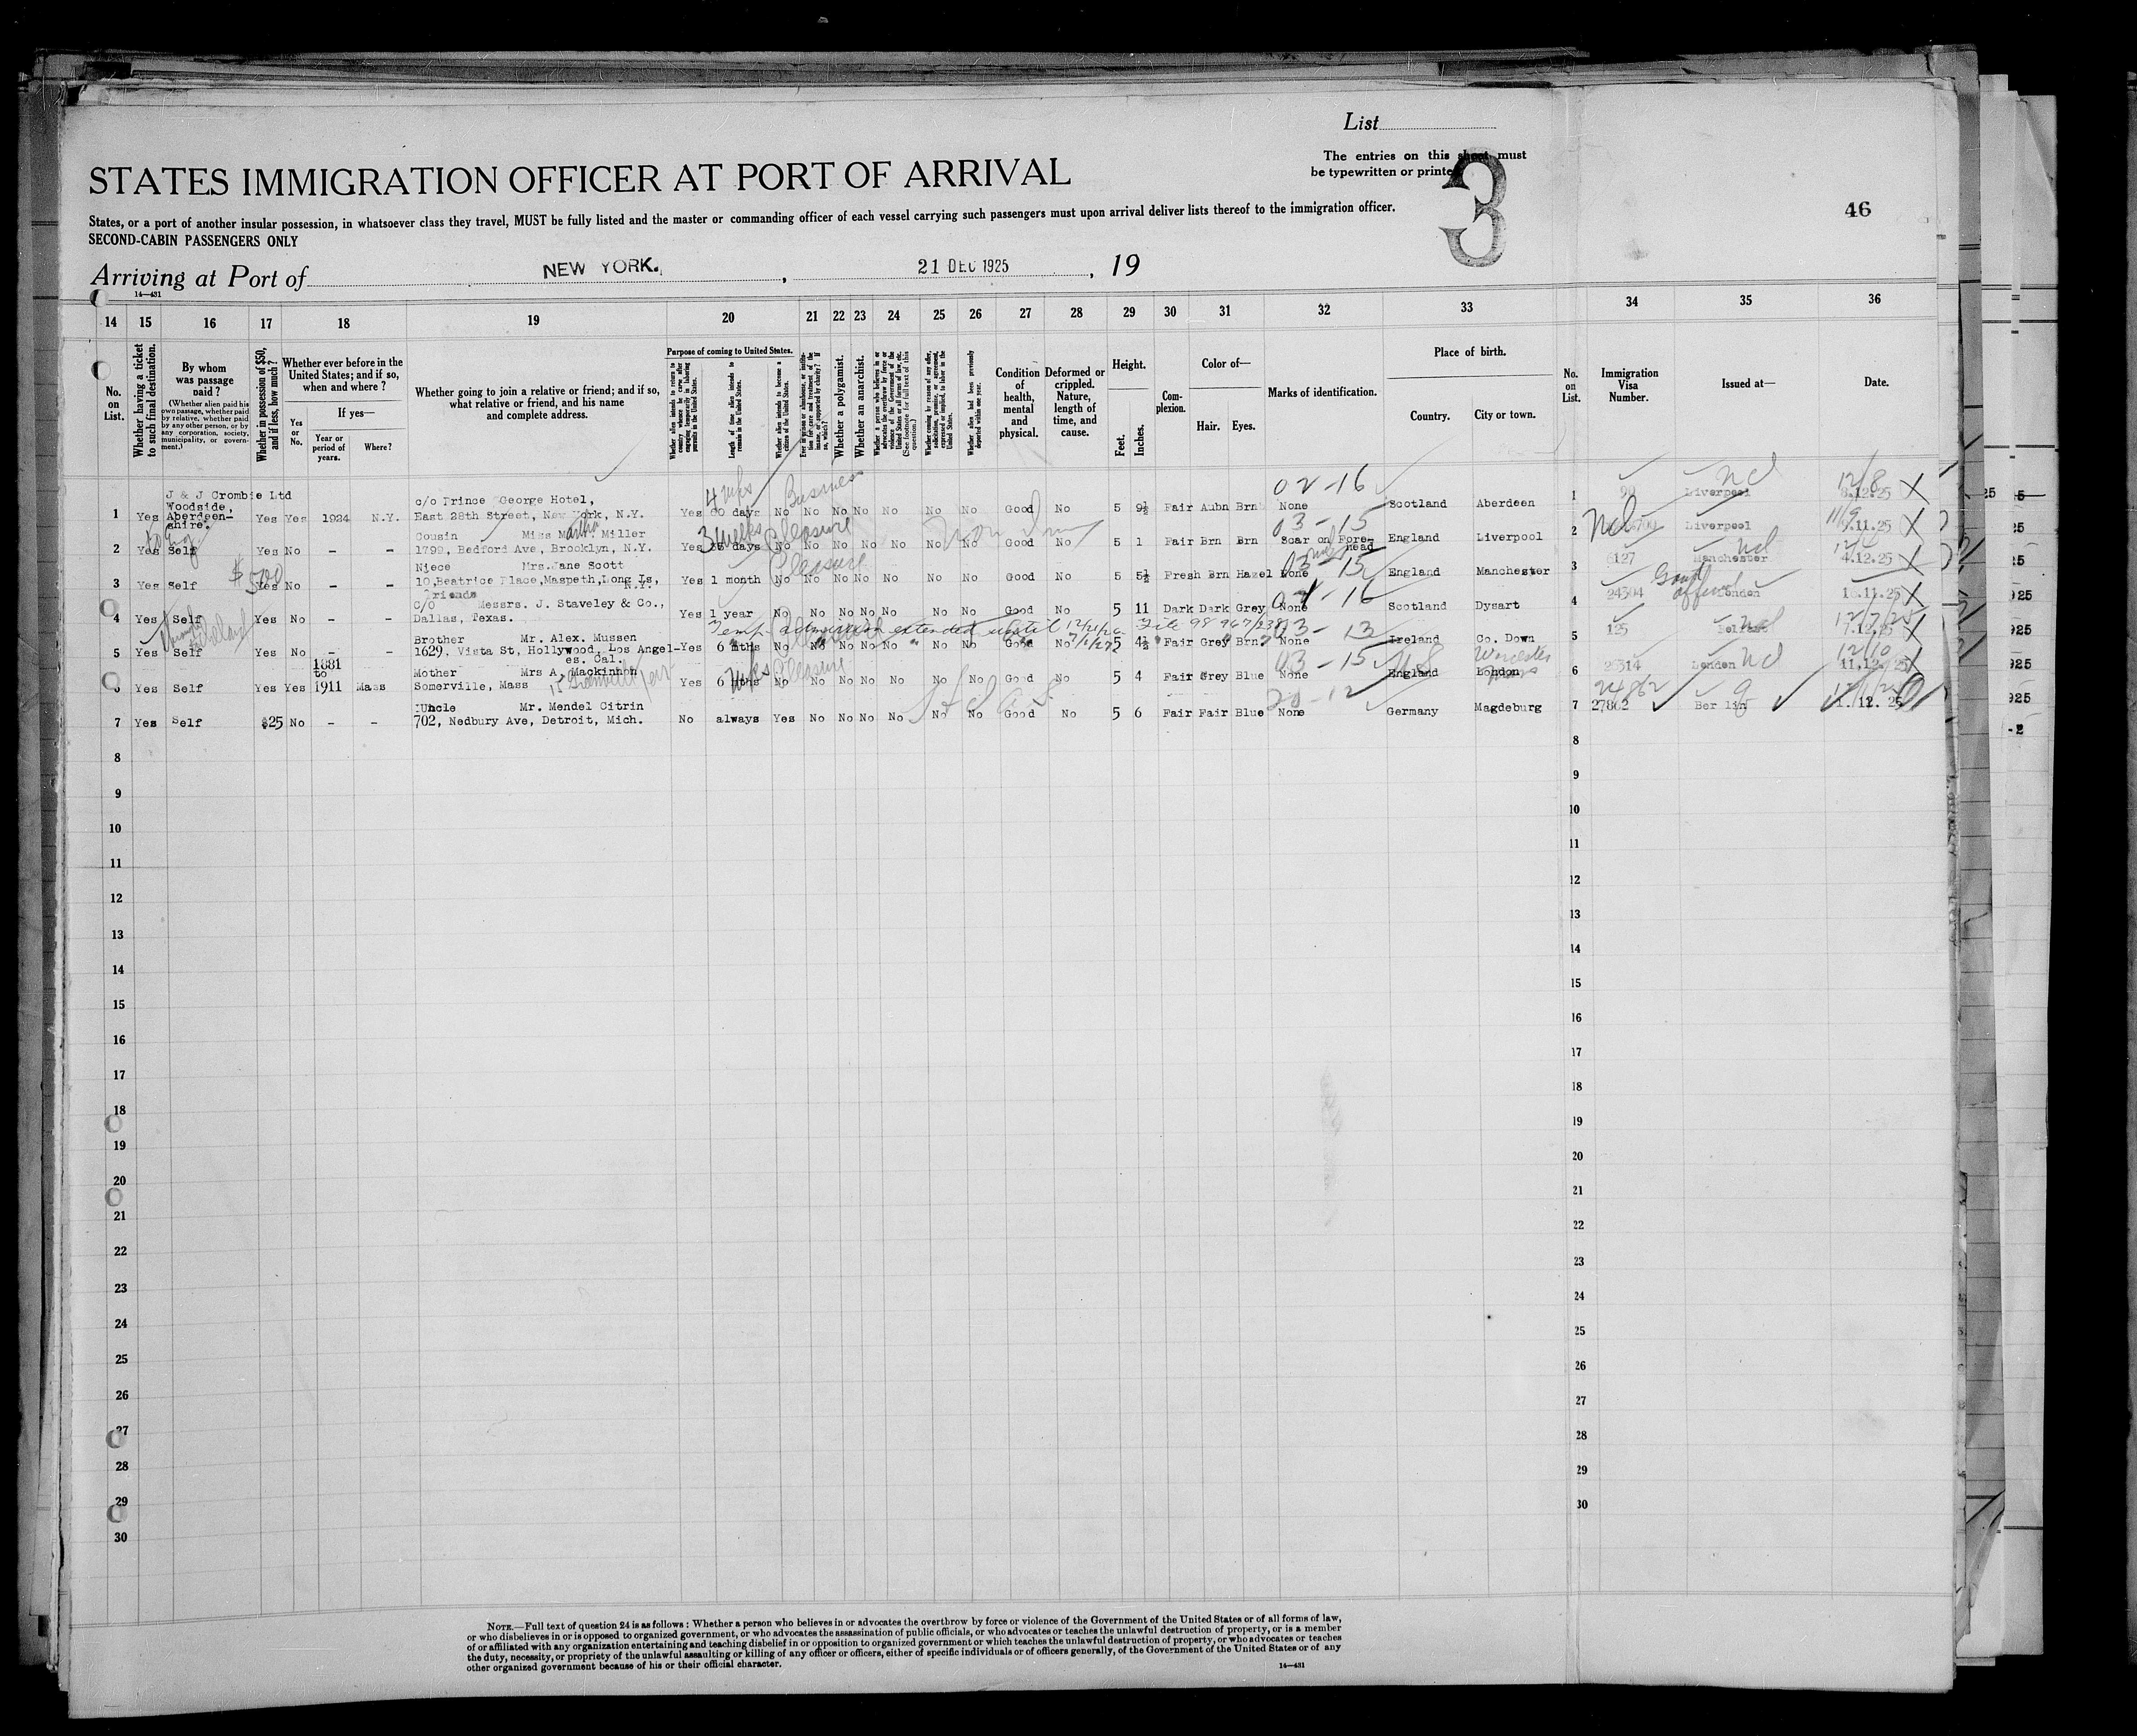 List
The entries on this sheet must
be typewritten or printed
3
46
STATES IMMIGRATION OFFICER AT PORT OF ARRIVAL
States, or a port of another insular possession, in whatsoever class they travel, MUST be fully listed and the master or commanding officer of each vessel carrying such passengers must upon arrival deliver lists thereof to the immigration officer.
SECOND-CABIN PASSENGERS ONLY
Arriving at Port of NEW YORK. , 21 DEC 1925 , 19
14—431
14 15 16 17 18 19 20 21 22 23 24 25 26 27 28 29 30 31 32 33 34 35 36
No. on List.
Whether having a ticket to such final destination.
By whom was passage paid?
(Whether alien paid his own passage, whether paid by relative, whether paid by any other person, or by any corporation, society, municipality, or government.)
Whether in possession of $50, and if less, how much?
Whether ever before in the United States; and if so, when and where?
Yes or No.
If yes—
Year or period of years.
Where?
Whether going to join a relative or friend; and if so, what relative or friend, and his name and complete address.
Purpose of coming to United States.
Whether alien intends to return to country whence he came after engaging temporarily in laboring pursuits in the United States.
Length of time alien intends to remain in the United States.
Whether alien intends to become a citizen of the United States.
Whether a polygamist.
Whether an anarchist.
Condition of health, mental and physical.
Deformed or crippled. Nature, length of time, and cause.
Height.
Feet.
Inches.
Complexion.
Color of—
Hair. Eyes.
Marks of identification.
Place of birth.
Country.
City or town.
No. on List.
Immigration Visa Number.
Issued at—
Date.
4 wks Business 02-16 nd 12/8
J & J Crombie Ltd
Woodside,
Aberdeen-
shire.
c/o Prince George Hotel,
1 Yes Yes Yes 1924 N.Y. East 28th Street, New York, N.Y. Yes 60 days No No No No No No No Good No 5 9½ Fair Aubn Brn None Scotland Aberdeen 1 Liverpool 8.12.25 X
3 weeks Pleasure 03-15
Cousin Miss Martha Miller
2 Yes Self Yes No - - 1799, Bedford Ave, Brooklyn, N.Y. Yes days No No No No No No No Good No 5 1 Fair Brn Brn Scar on Forehead England Liverpool 2 Liverpool .11.25 X
$500 Pleasure 03-15 nd
Niece Mrs. Jane Scott
3 Yes Self Yes No - - 10, Beatrice Place, Maspeth, Long Is, N.Y. Yes 1 month No No No No No No No Good No 5 5½ Fresh Brn Hazel None England Manchester 3 127 Manchester 4.12.25 X
Friends
04-16
c/o Messrs. J. Staveley & Co.,
4 Yes Self Yes No - - Dallas, Texas. Yes 1 year No No No No No No No Good No 5 11 Dark Dark Grey None Scotland Dysart 4 24504 London .11.25 X
Temp. admission extended until 12/21/26 File 98967/238 03-13
Brother Mr. Alex. Mussen
5 Yes Self Yes No - - 1629, Vista St, Hollywood, Los Angel-es. Cal. Yes 6 mths No No No No No No No Good No 5 4½ Fair Grey Brn None Ireland Co. Down 5 125 Belfast 7.12.25 X
Pleasure 03-15 nd 12/10
1881
to
Mother Mrs A. Mackinnon
6 Yes Self Yes Yes 1911 Mass Somerville, Mass Yes 6 mths No No No No No No No Good No 5 4 Fair Grey Blue None England London 6 London 11.12.25 X
Worcester
24862
Uncle Mr. Mendel Citrin
7 Yes Self $25 No - - 702, Nedbury Ave, Detroit, Mich. No always Yes No No No No No No Good No 5 6 Fair Fair Blue None Germany Magdeburg 7 27862 Berlin
8 8
9 9
10 10
11 11
12 12
13 13
14 14
15 15
16 16
17 17
18 18
19 19
20 20
21 21
22 22
23 23
24 24
25 25
26 26
27 27
28 28
29 29
30 30
NOTE.—Full text of question 24 is as follows: Whether a person who believes in or advocates the overthrow by force or violence of the Government of the United States or of all forms of law,
or who disbelieves in or is opposed to organized government, or who advocates the assassination of public officials, or who advocates or teaches the unlawful destruction of property, or is a member
of or affiliated with any organization entertaining and teaching disbelief in or opposition to organized government or which teaches the unlawful destruction of property, or who advocates or teaches
the duty, necessity, or propriety of the unlawful assaulting or killing of any officer or officers, either of specific individuals or of officers generally, of the Government of the United States or of any
other organized government because of his or their official character.
14—431